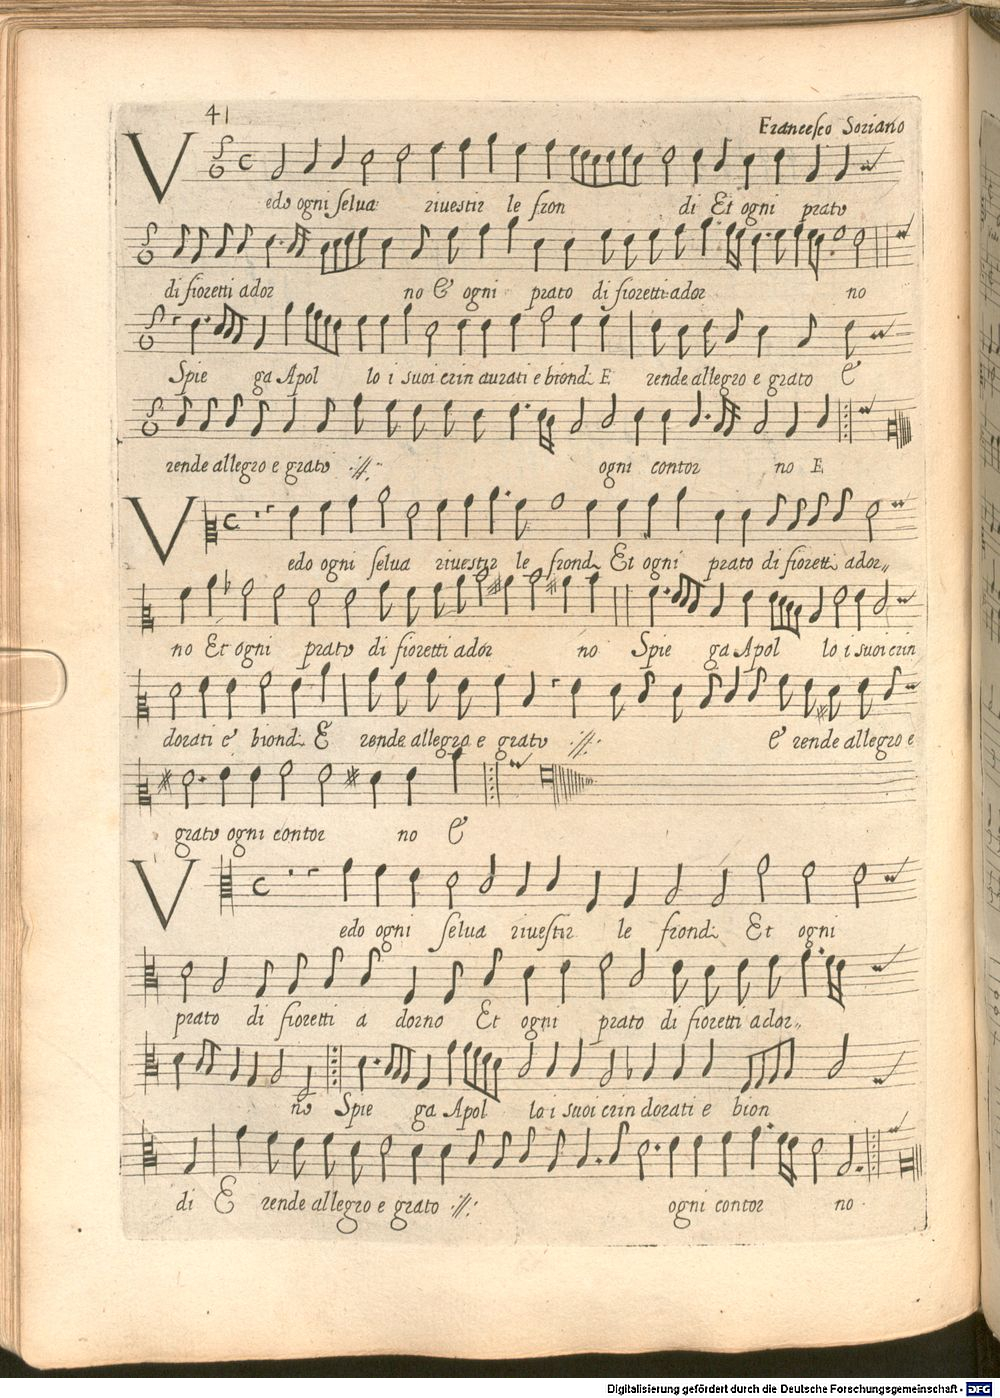 41
Francesco Soriano
Vedo ogni selua riuestir le fron di Et ogni prato
di fioretti ador no & ogni prato di fioretti ador no
Spie ga Apol lo i suoi crin aurati e biond: E rende allegro e grato &
rende allegro e grato :||: ogni contor no E
Vedo ogni selua riuestir le frond: Et ogni prato di fioretti ador„
no Et ogni prato di fioretti ador no Spie ga Apol lo i suoi crin
dorati e biond: E rende allegro e grato :||: & rende allegro e
grato ogni contor no &
Vedo ogni selua riuestir le frond: Et ogni
prato di fioretti a dorno Et ogni prato di fioretti ador„
no Spie ga Apol lo i suoi crin dorati e bion
di E rende allegro e grato :||: ogni contor no
Digitalisierung gefördert durch die Deutsche Forschungsgemeinschaft - DFG